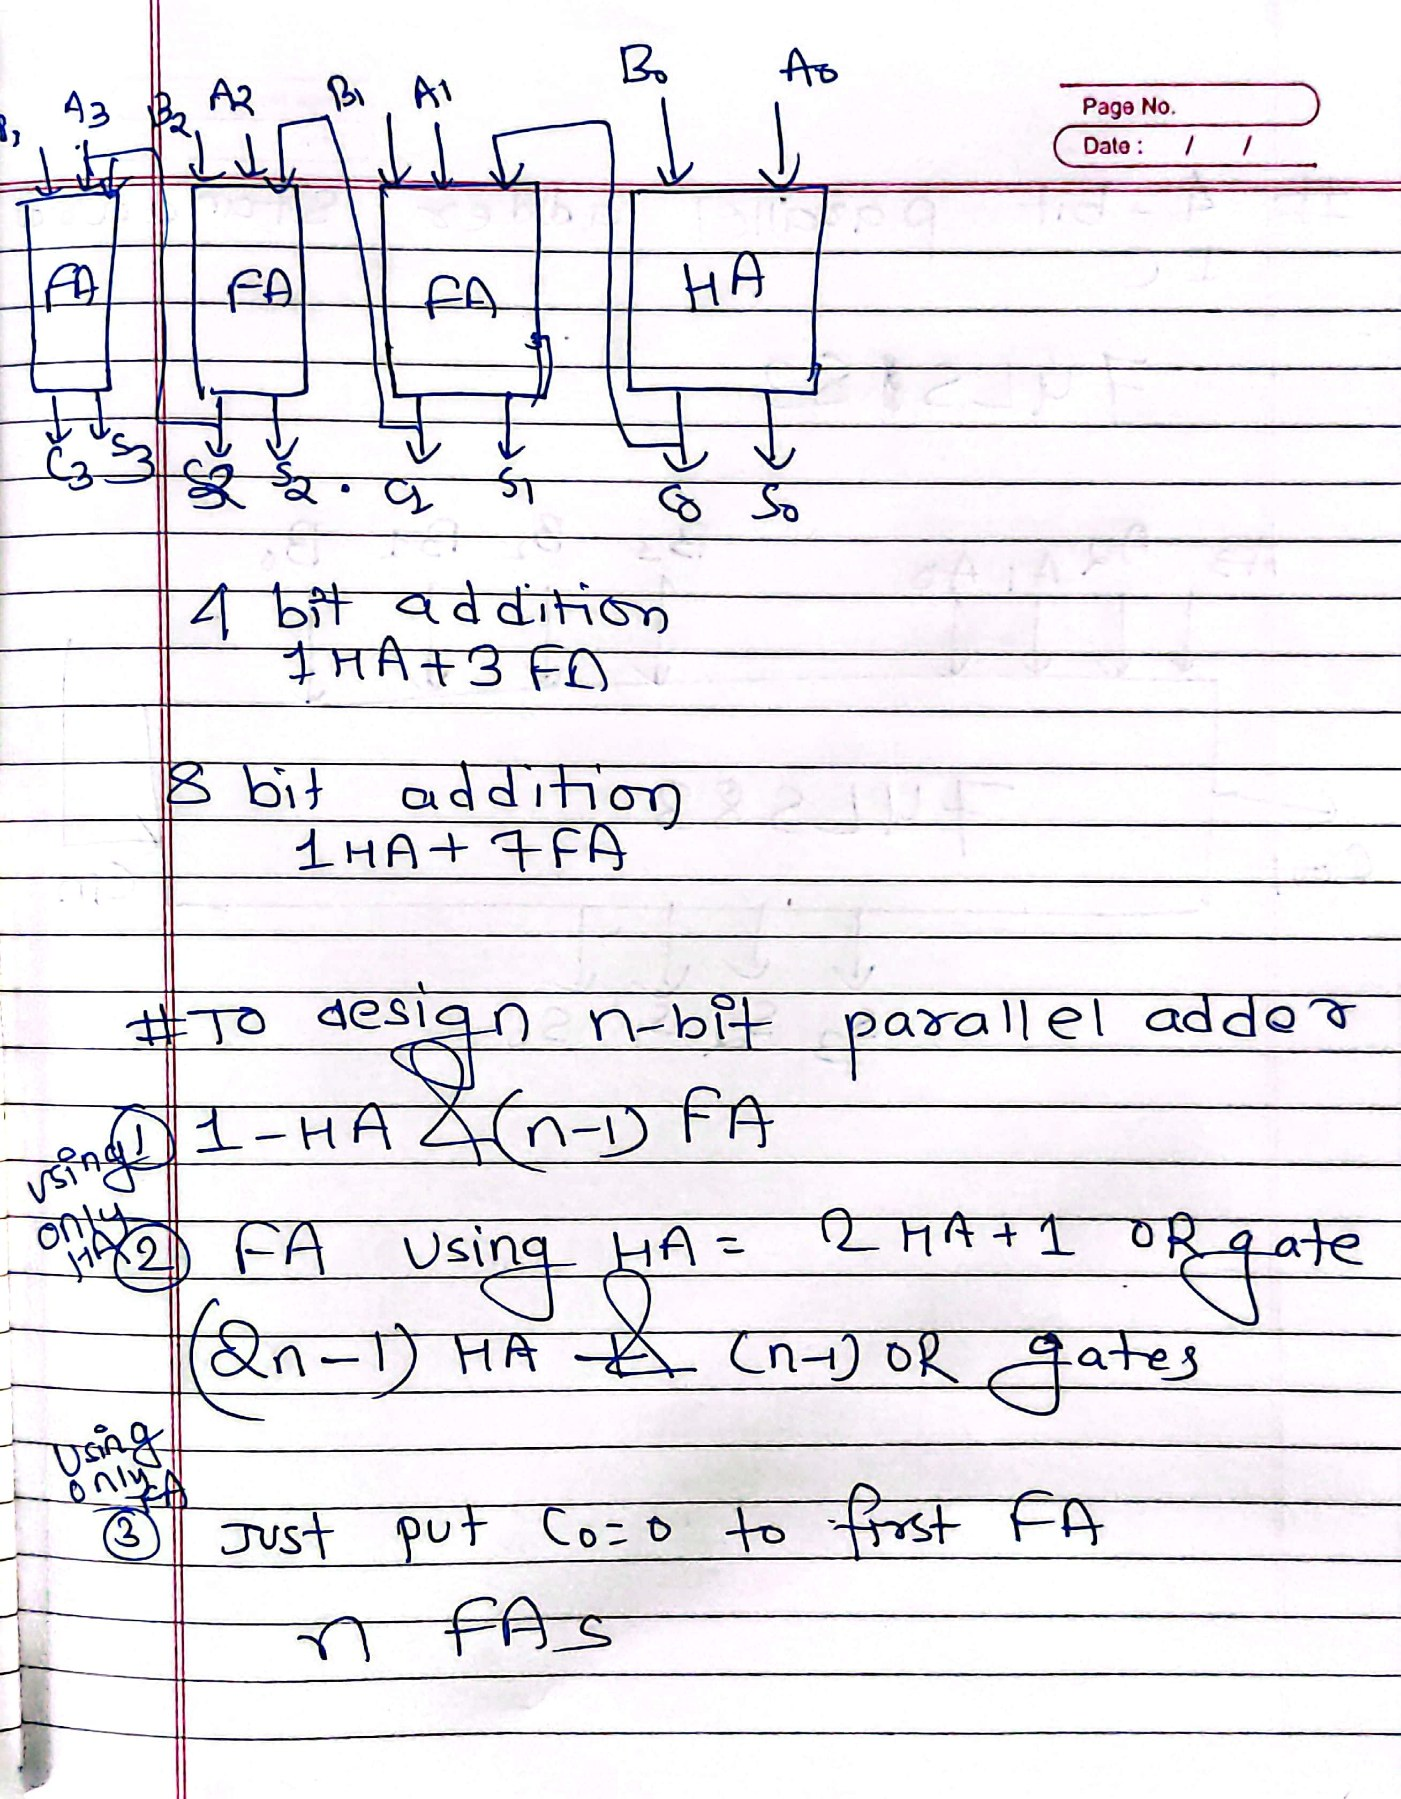 B0 A0
A3 B2 A2 B1 A1
Page No.
Date : / /
FA FA FA HA
C3 S3 S2 C1 S1 C0 S0
4 bit addition
1 HA + 3 FA
8 bit addition
1 HA + 7 FA
# To design n-bit parallel adder
① 1 - HA & (n-1) FA
using only HA
② FA Using HA = 2 HA + 1 OR gate
(2n-1) HA & (n-1) OR gates
Using only FA
③ Just put C0=0 to first FA
n FAs